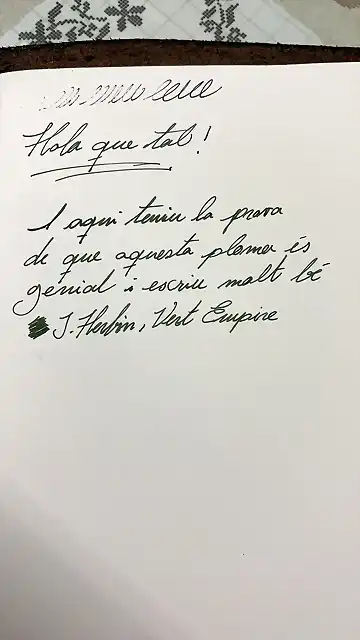 Hola que tal!
I aqui teniu la prova
de que aquesta ploma és
genial i escriu molt bé
J. Herbin, Vert Empire